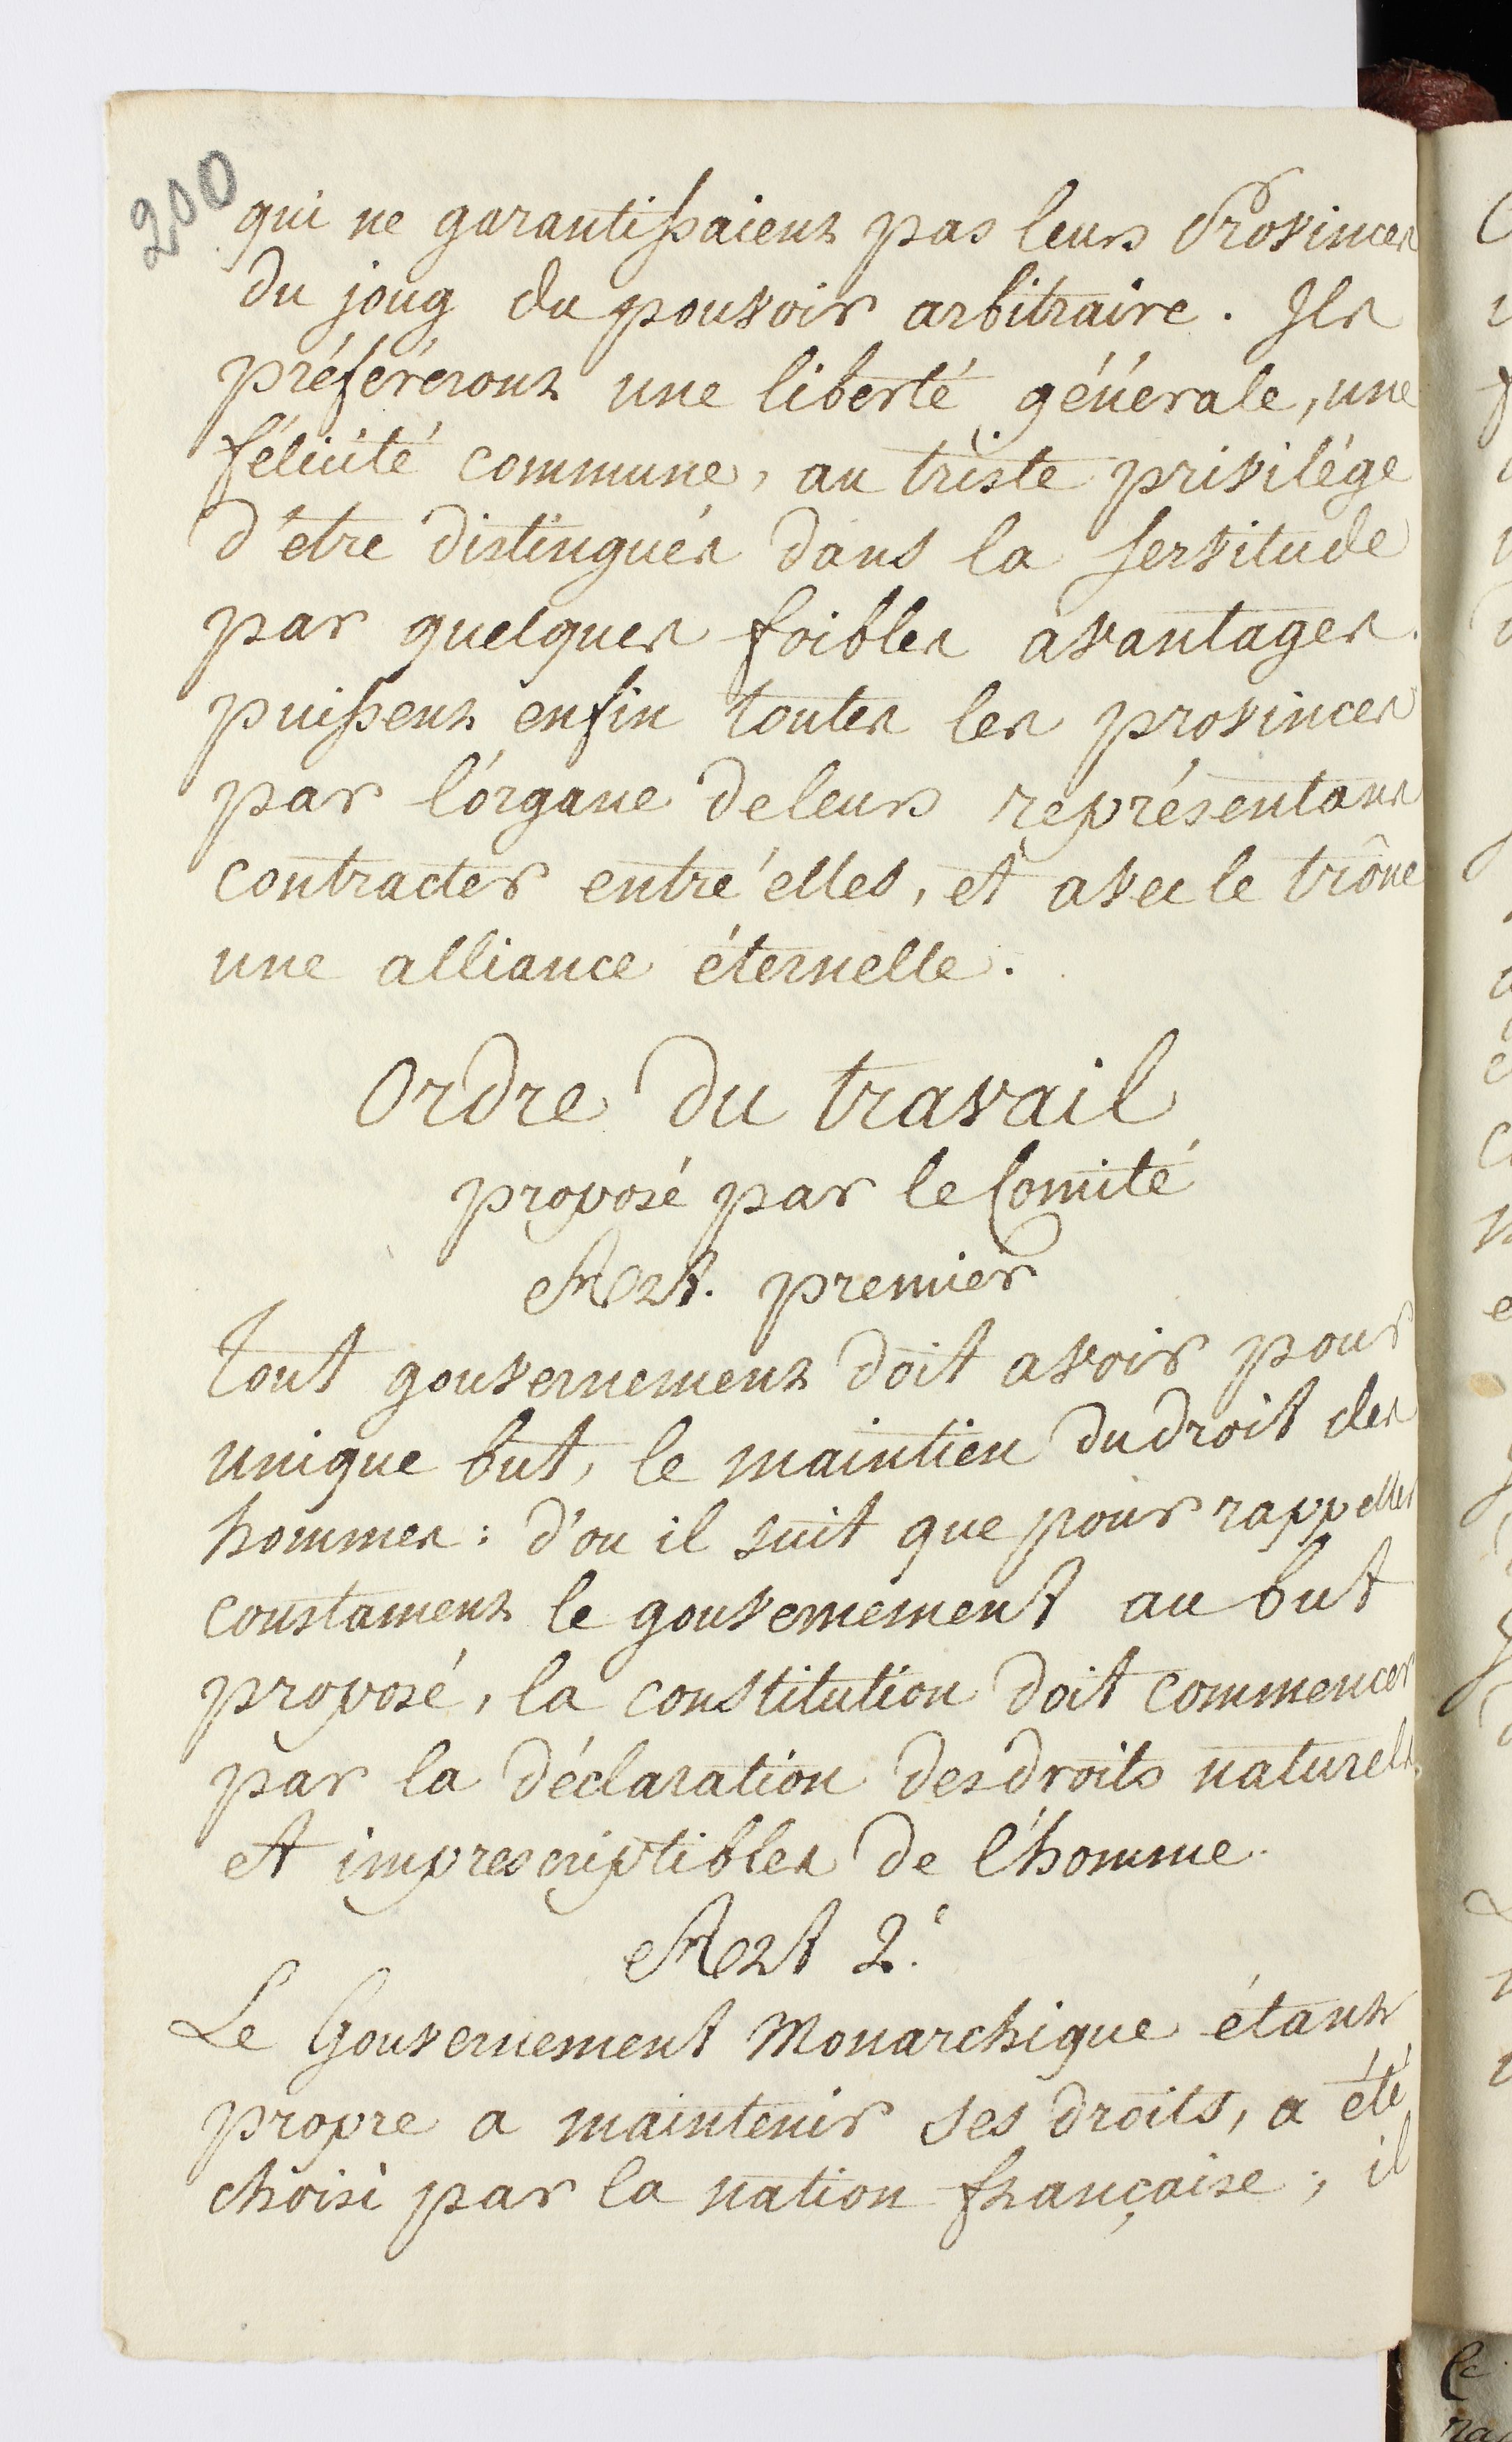 200
qui ne garantissaient pas leurs Provinces
du joug du pouvoir arbitraire. Ils
préféreront une liberté générale, une
félicité commune, au triste privilége
d'être distingués dans la servitude
par quelques foibles avantages.
puissent enfin toutes les provinces
par l'organe de leurs représentans
contracter entre'elles, et avec le trône
une alliance éternelle.
Ordre du travail
proposé par le Comité
Art. premier
Tout gouvernement doit avoir pour
unique but, le maintien du droit des
hommes : d'ou il suit que pour rappeller
constament le gouvernement au but
proposé, la constitution doit commencer
par la déclaration des droits naturels,
et imprescriptibles de l'homme.
Art 2.e
Le Gouvernement Monarchique étant
propre a maintenir ses droits, a été
choisi par la nation française ; il